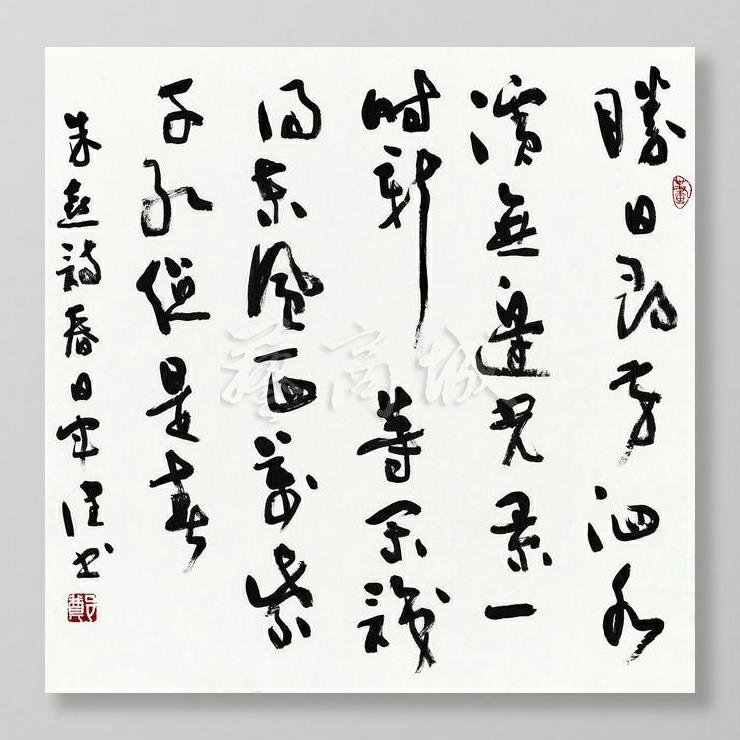 勝日尋芳泗水
濱無邊光景一
時新 等閑識
得東風面萬紫
千紅總是春
朱熹詩春日 書
藝高城